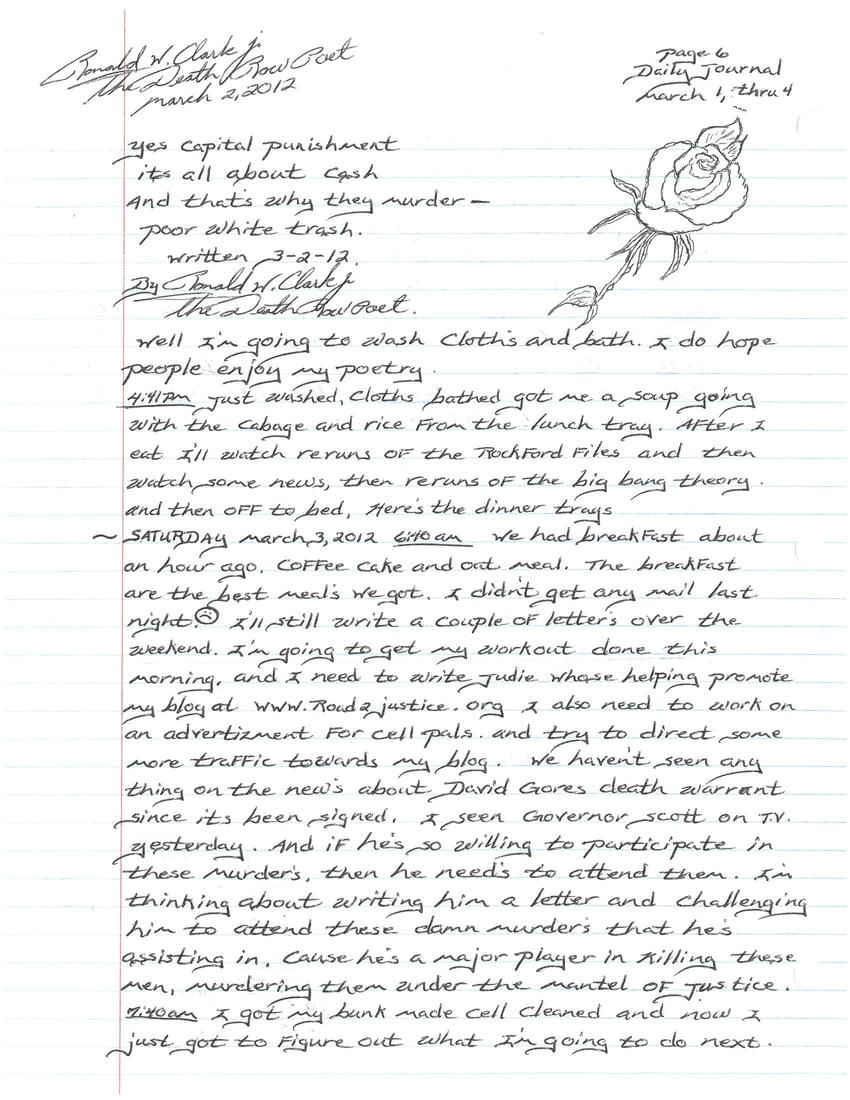 Ronald W. Clark jr
The Death Row Poet
march 2, 2012
page 6
Daily Journal
march 1, thru 4
yes capital punishment
its all about cash
And that's why they murder —
poor white trash.
written 3-2-12.
By Ronald W. Clark jr
The Death Row Poet.
Well I'm going to wash Cloth's and bath. I do hope
people enjoy my poetry.
4:41pm just washed, Cloths bathed got me a soup going
with the Cabage and rice From the lunch tray. AFter I
eat I'll watch reruns OF the RockFord Files and then
watch some news, then reruns OF the big bang theory.
and then OFF to bed, Here's the dinner trays
~ SATURDAY march,3,2012 6:40am We had breakFast about
an hour ago. CoFFee cake and oat meal. The breakFast
are the best meal's we got. I didn't get any mail last
night ☹ I'll still write a couple oF letter's over the
weekend. I'm going to get my workout done this
morning, and I need to write Judie whose helping promote
my blog at www.Road2justice.org I also need to work on
an advertizment For cell pals. and try to direct some
more traFFic towards my blog. We haven't seen any
thing on the new's about David Gores death warrant
since its been signed. I seen Governor Scott on T.V.
yesterday. And iF he's so willing to participate in
these murder's, then he need's to attend them. I'm
thinking about writing him a letter and challenging
him to attend these damn murder's that he's
assisting in. Cause he's a major player in Killing these
men, murdering them under the mantel OF justice.
7:40am I got my bunk made cell Cleaned and now I
just got to Figure out what I'm going to do next.